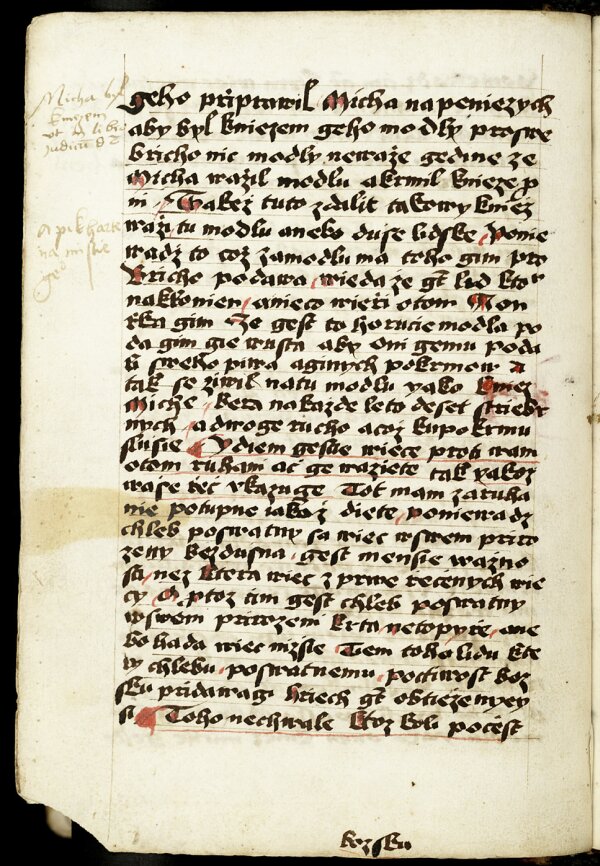 Micha byl
knezem
ut in libro
Judicu
geho prziprawil Micha napeniezych
aby byl kniezem geho modly proswe
bricho nic modly neważe gedine że
Micha ważil modlu akrmil knieze p
ni Thakeż tuto zdalit takowy kniez
waži tu modlu anebo duse lidske Ponie
wadż to coż zamodlu ma toho gim pro
bricho podawa wieda że gt lud ktor
naklonien anieco wieri otom Mon
rka gim Że gest to horucie modla po
da gim gie wusta aby oni gemu poda
li sweho piwa aginych pokrmow A
tak se żiwil natu modlu yako kniez
Miche Bera nakażde leto deset striebr
nych adwoge rucho acoż kupokrmu
slusie Ydiem gestie wiece proti wam
otom ruhani ac ge waziete tak yakoż
wase rec vkazuge Tot mam zaruha
nie potupne iakoż diete poniewadż
chleb poswatny sa wiec wswem priro
zeny bezdusna gest mensie ważno
sti neż ktera wiec z prwe recenych wie
cy A protoż tim gest chleb poswatny
wswem prirozem krta netopyre ane
bo hada wiec niżsie Tiem toho lidu kte
ry chlebu poswatnemu poctiwost boż
sku pridawagi hriech gt obtieżenyey
si Toho nechwale ktoż koli poctst
bożsku